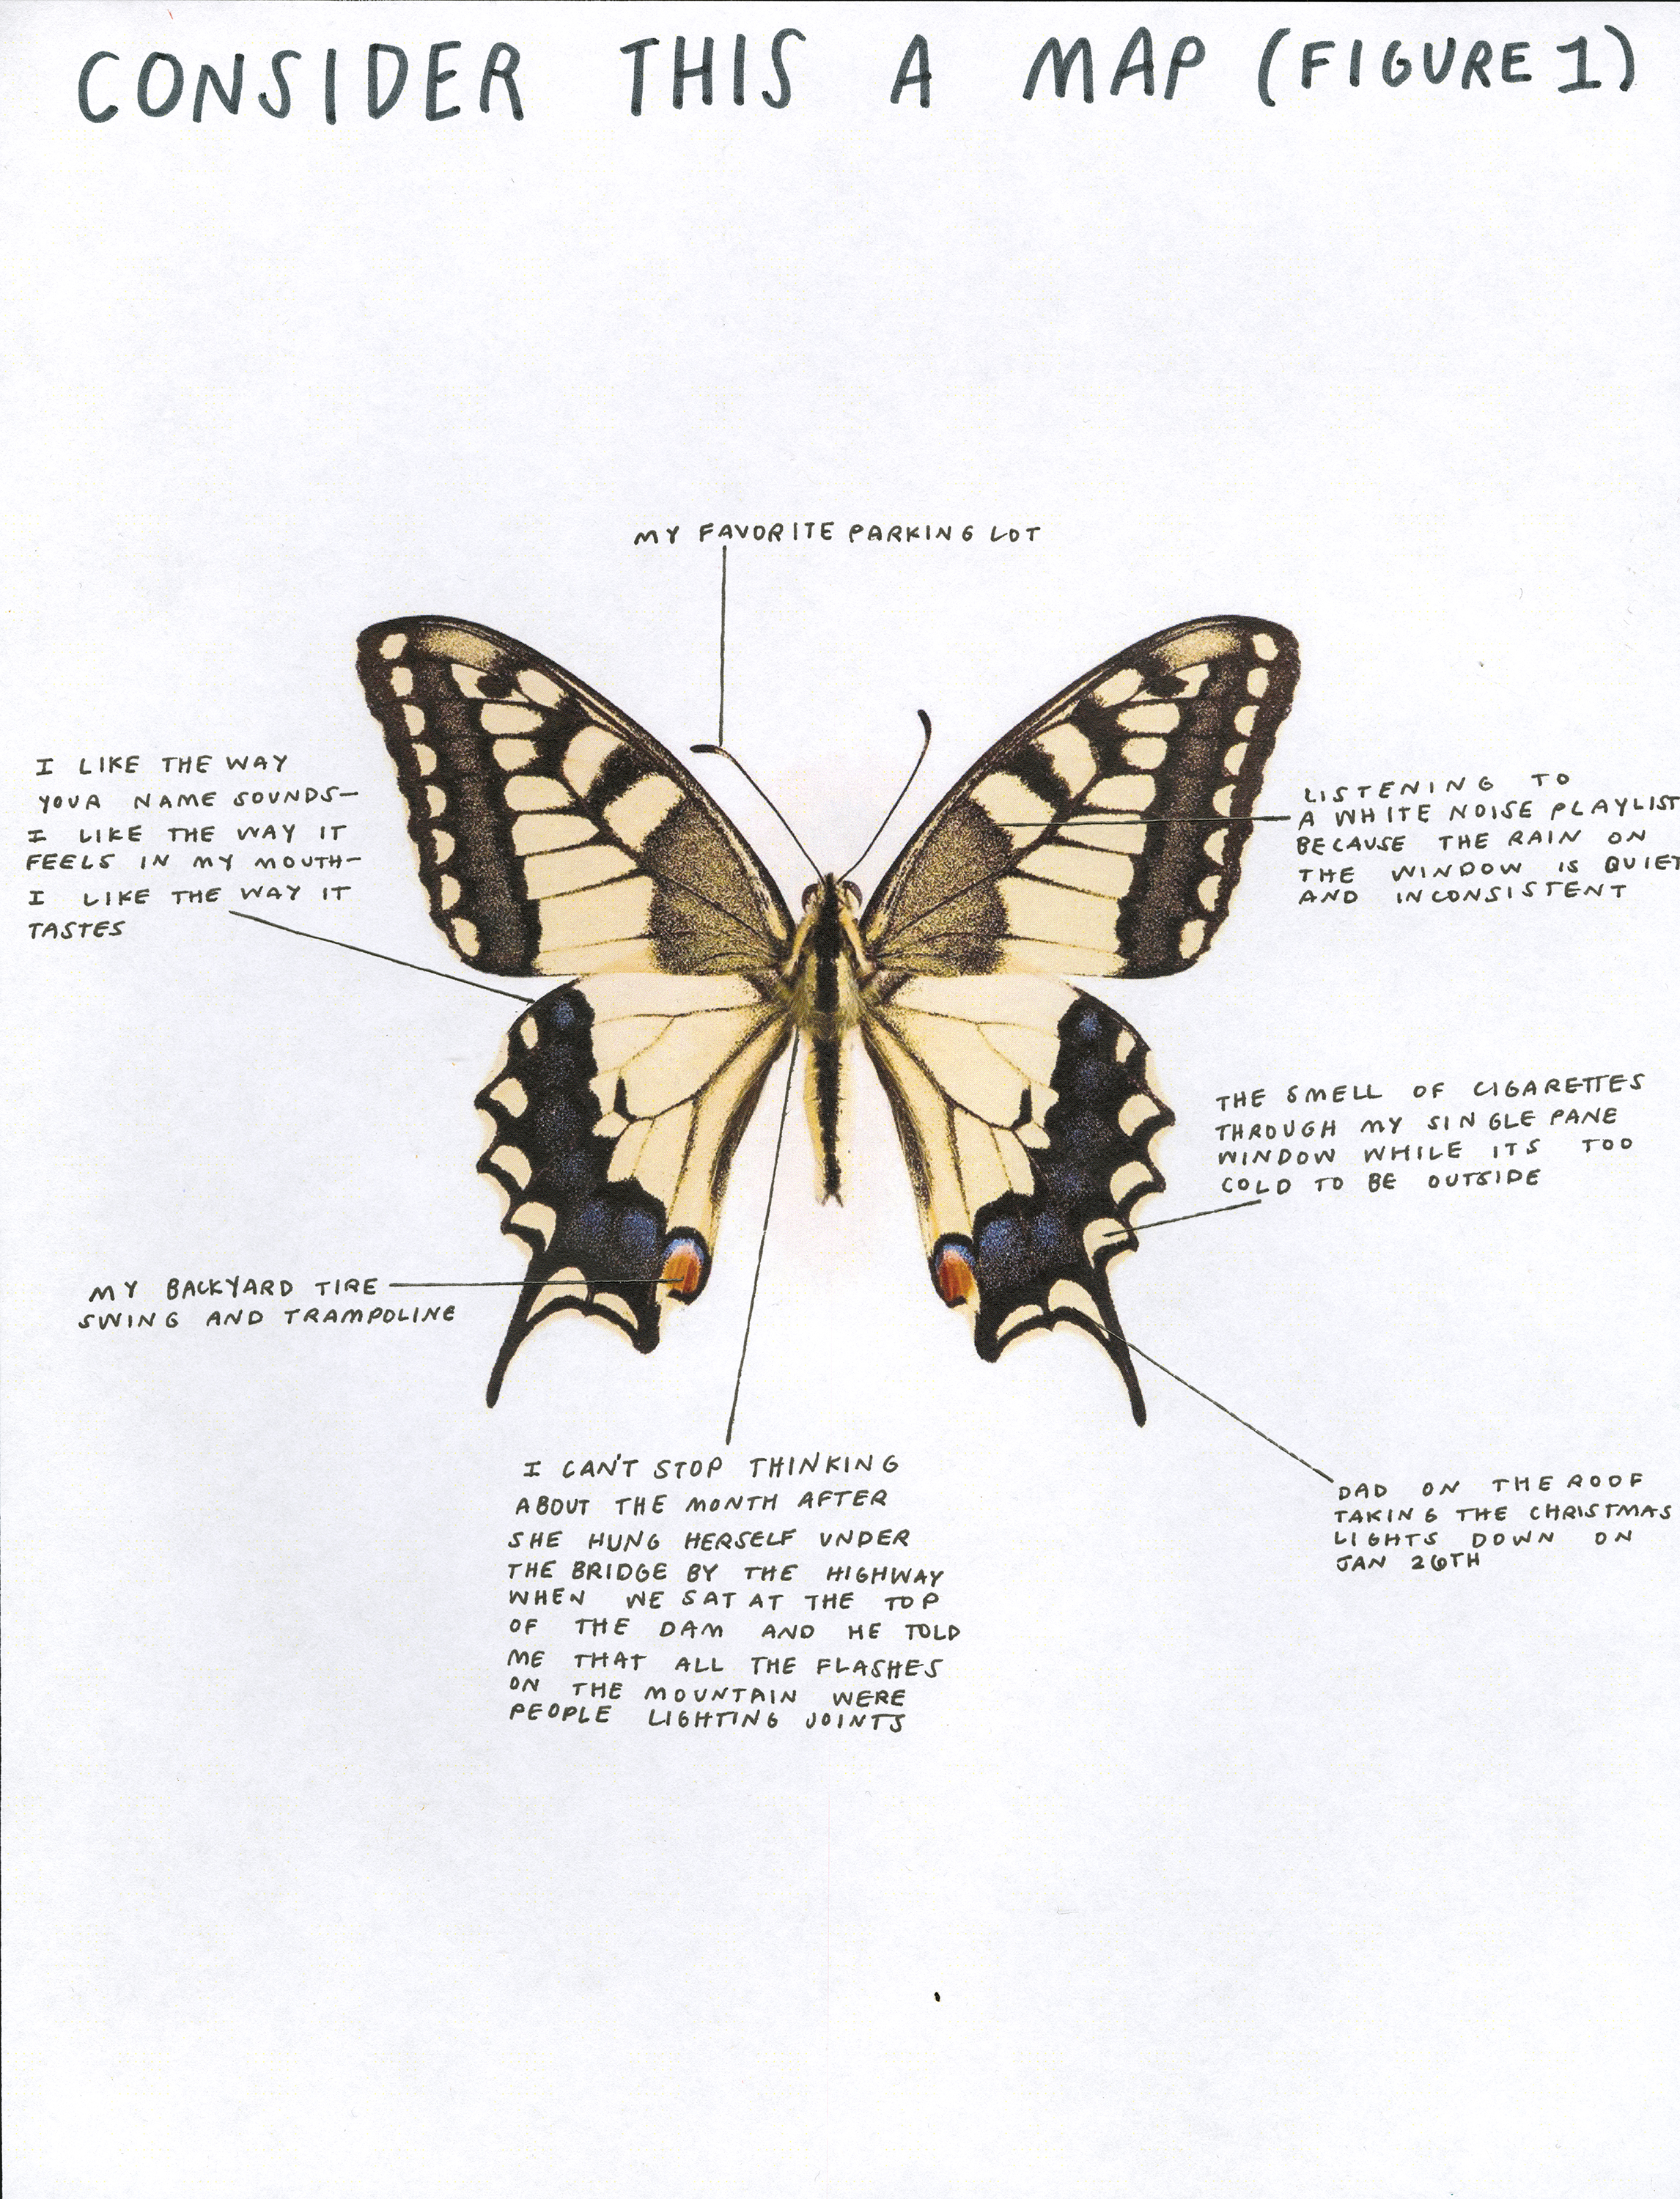 CONSIDER THIS A MAP (FIGURE 1)
MY FAVORITE PARKING LOT
I LIKE THE WAY
YOUR NAME SOUNDS—
I LIKE THE WAY IT
FEELS IN MY MOUTH—
I LIKE THE WAY IT
TASTES
LISTENING TO
A WHITE NOISE PLAYLIST
BECAUSE THE RAIN ON
THE WINDOW IS QUIET
AND INCONSISTENT
THE SMELL OF CIGARETTES
THROUGH MY SINGLE PANE
WINDOW WHILE ITS TOO
COLD TO BE OUTSIDE
MY BACKYARD TIRE
SWING AND TRAMPOLINE
I CAN'T STOP THINKING
ABOUT THE MONTH AFTER
SHE HUNG HERSELF UNDER
THE BRIDGE BY THE HIGHWAY
WHEN WE SAT AT THE TOP
OF THE DAM AND HE TOLD
ME THAT ALL THE FLASHES
ON THE MOUNTAIN WERE
PEOPLE LIGHTING JOINTS
DAD ON THE ROOF
TAKING THE CHRISTMAS
LIGHTS DOWN ON
JAN 26TH